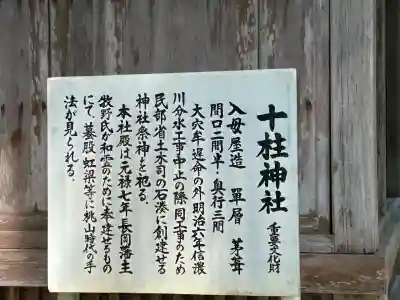 十柱神社 重要文化財
入母屋造 單層 茅葺
間口二間半・奥行三間
大穴牟遅命の外明治六年信濃
川分水工事中止の際同工事のため
民部省土木司の石湊に創建せる
神社祭神を祀る。
本社殿は元禄七年長岡藩主
牧野氏が和霊のために奉建せるもの
にて、蟇股、虹梁等に桃山時代の手
法が見られる。